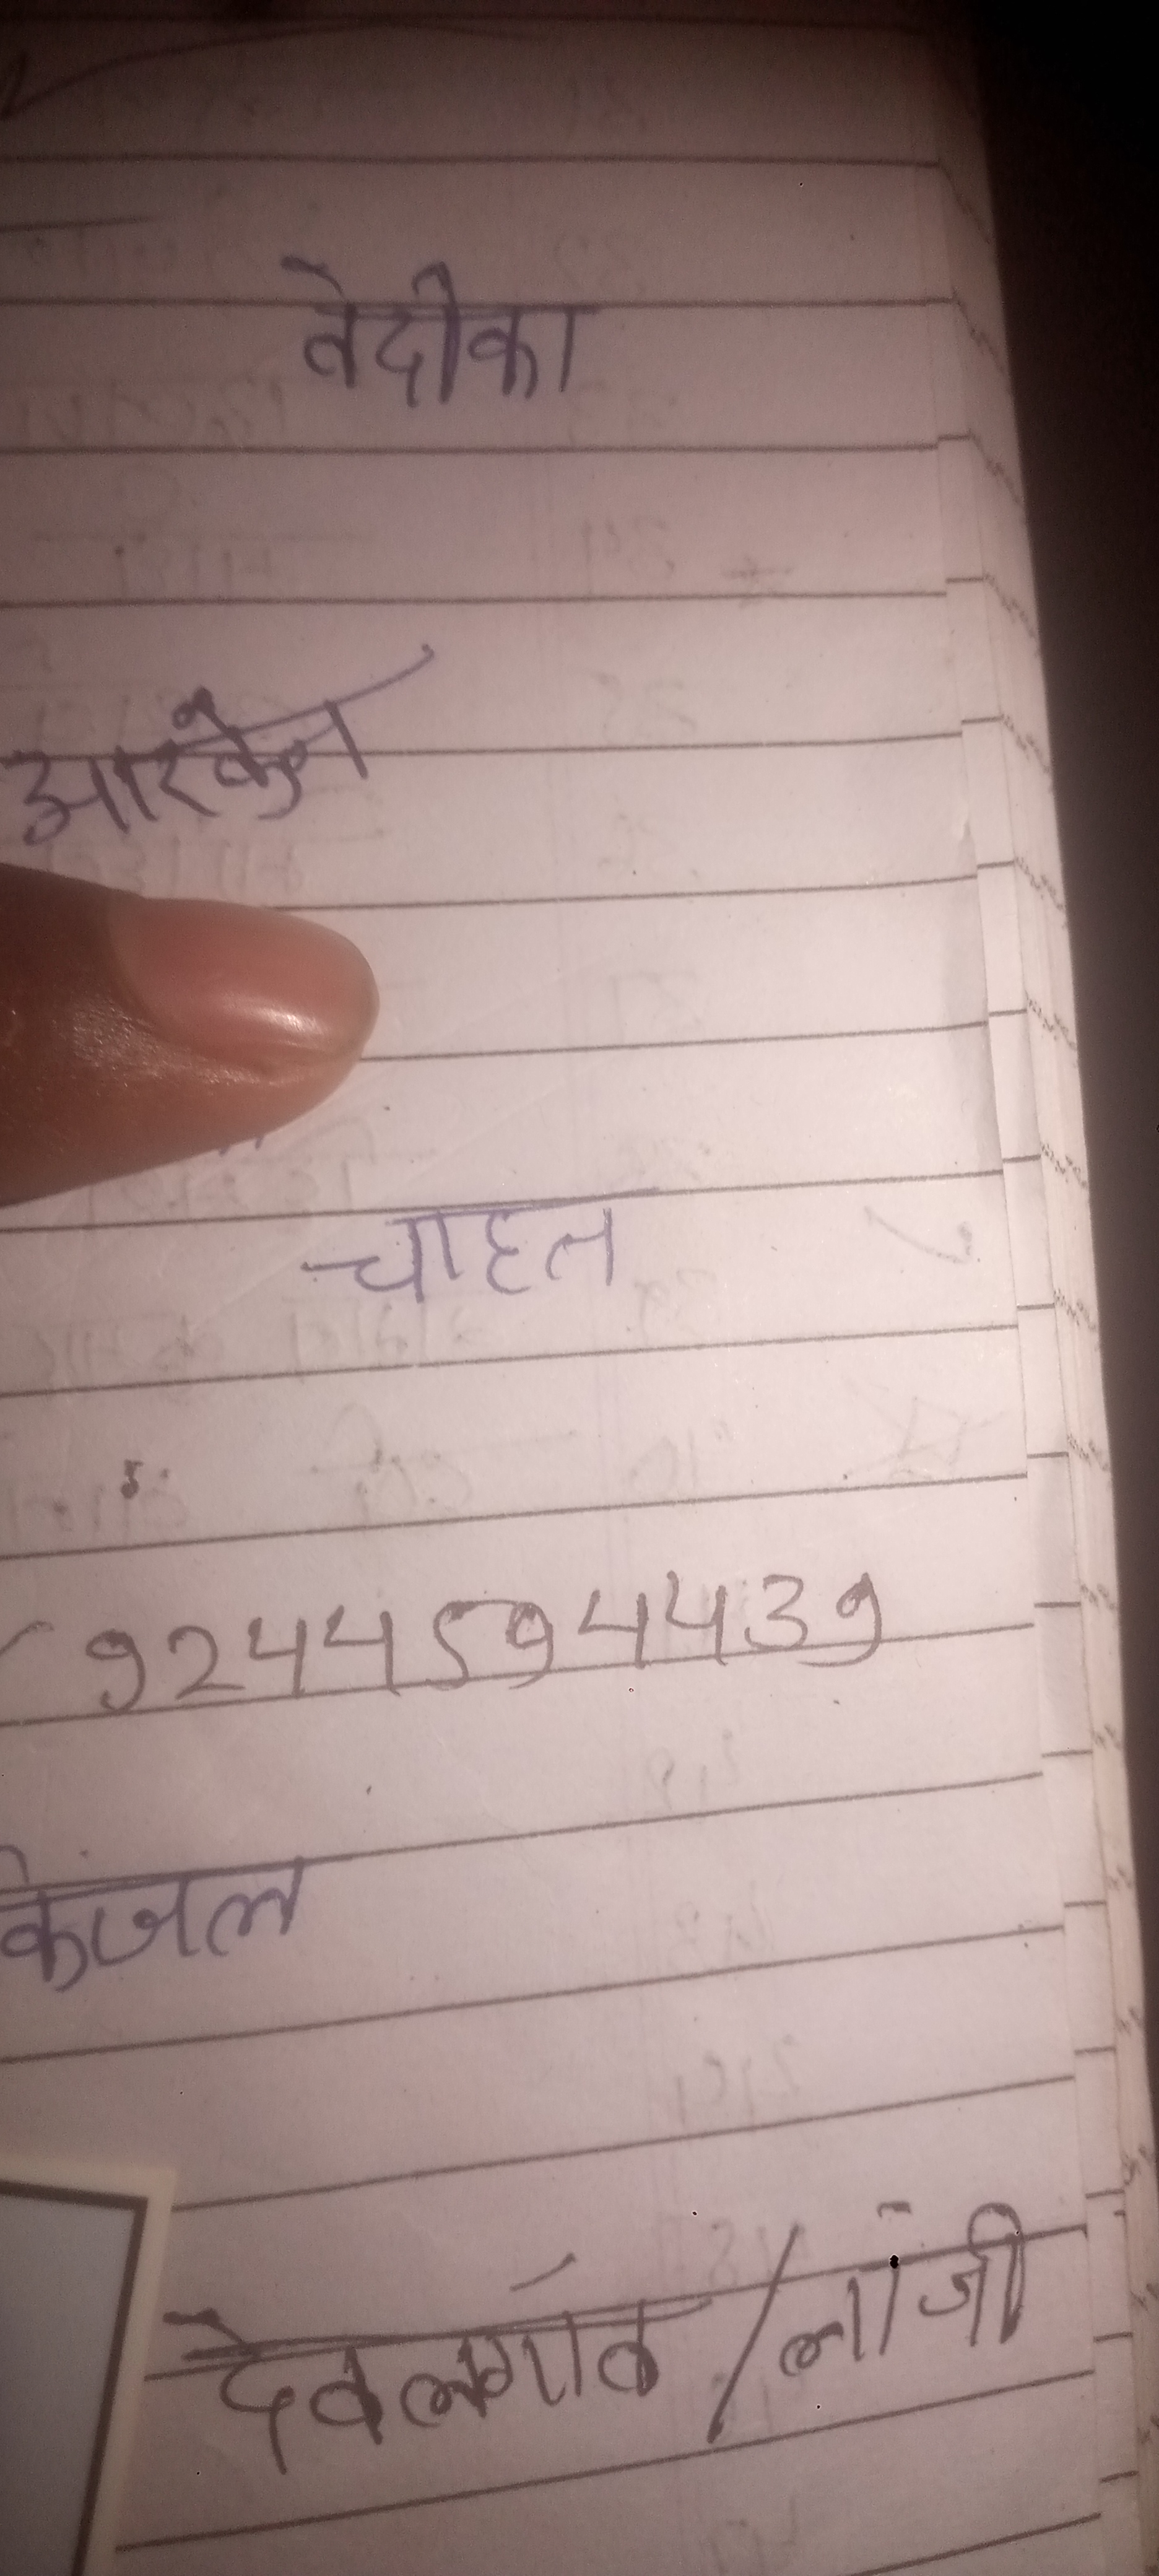 वेदीका
आरकेन
चाहत
9244594439
केजल
देवलगांव/लांजी